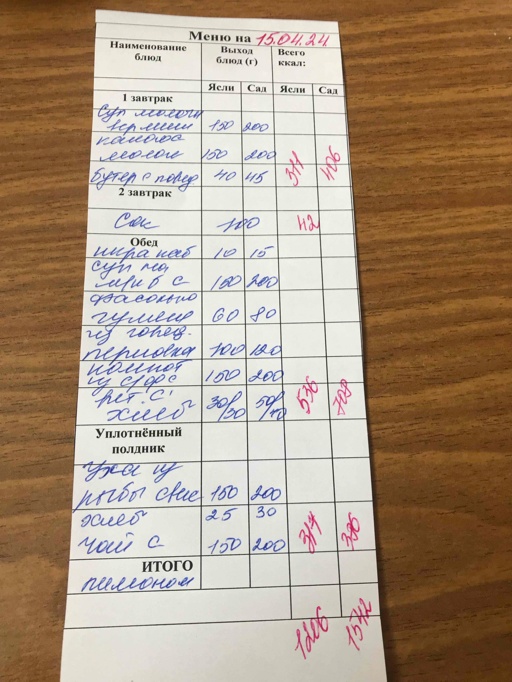 Меню на 15.04.24
Наименование блюд Выход блюд (г) Всего ккал:
Ясли Сад Ясли Сад
1 завтрак
Суп молочн
вермиш 150 200
какао на
молоке 150 200 311 406
Бутер с повид 40 45
2 завтрак
Сок 100 42
Обед
икра каб 10 15
суп на
м/к б с 150 200
фасолью
гуляш 60 80
из говяд.
перловка 100 120
компот
из с/ф с 150 200 536
вит. С
хлеб 30/30 50/
Уплотнённый
полдник
Уха из
рыбы свеж 150 200
хлеб 25 30 317
чай с 150 200
ИТОГО
лимоном
1206 1542